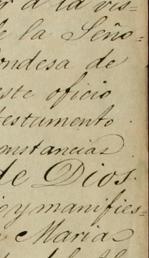 r á la vis=
de la Seño-
ondesa de
este oficio
testamento
cunstancias
de Dios.
o y manifies-
Maria